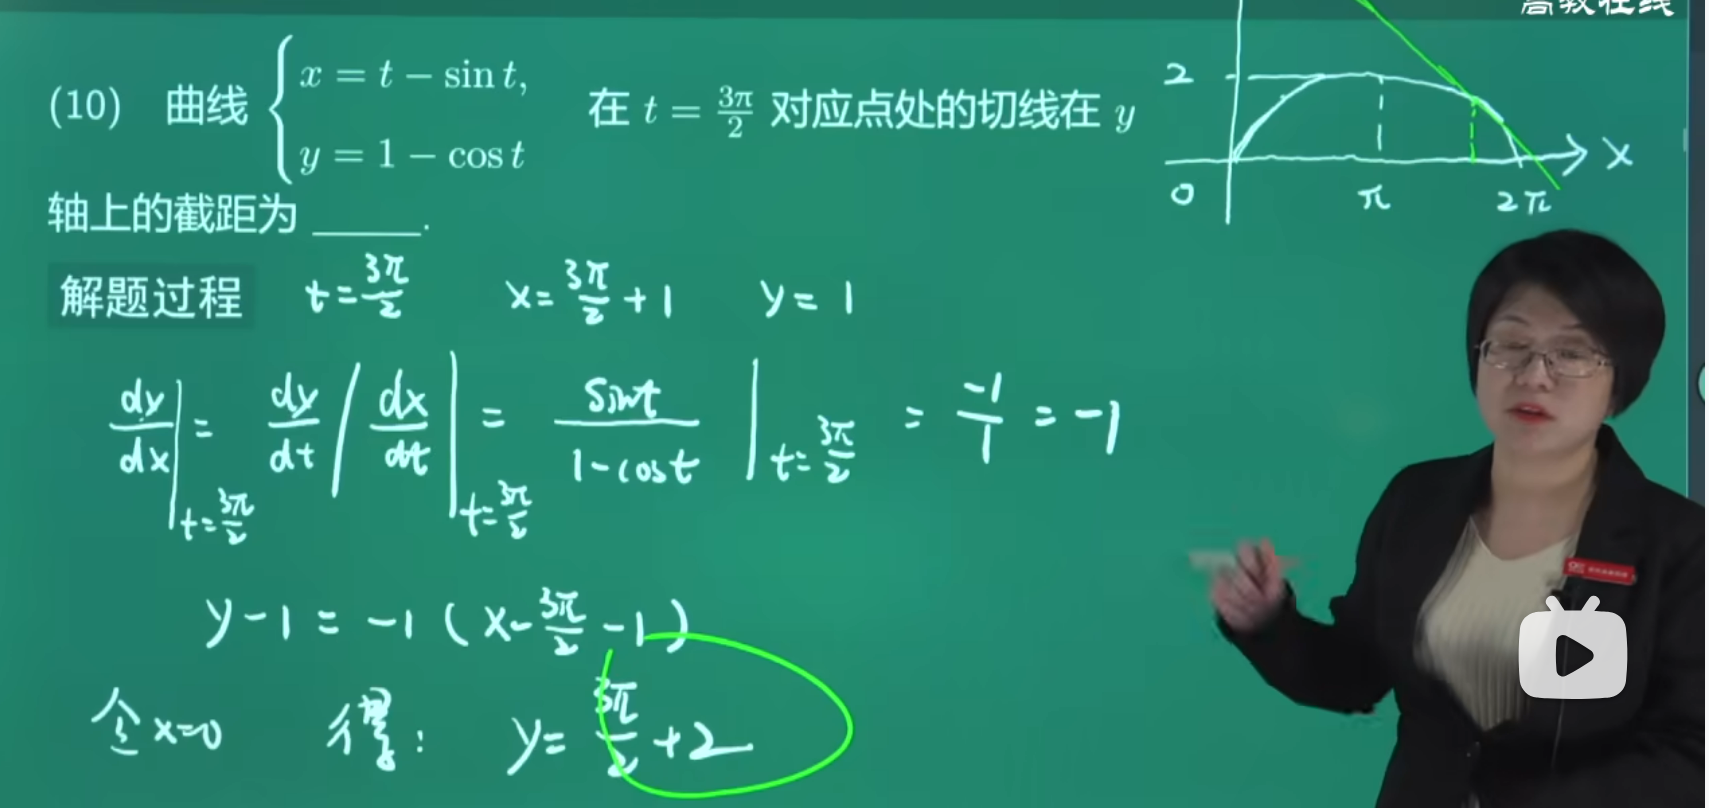 高教在线
(10) 曲线 { x = t − sin t, y = 1 − cos t 在 t = 3π/2 对应点处的切线在 y
轴上的截距为 ______.
2
0 π 2π X
解题过程 t = 3π/2 x = 3π/2 + 1 y = 1
dy/dx |t=3π/2 = dy/dt / dx/dt |t=3π/2 = sint/(1-cost) |t=3π/2 = -1/1 = -1
y-1 = -1 (x - 3π/2 - 1)
令 x=0 得: y = 3π/2 + 2